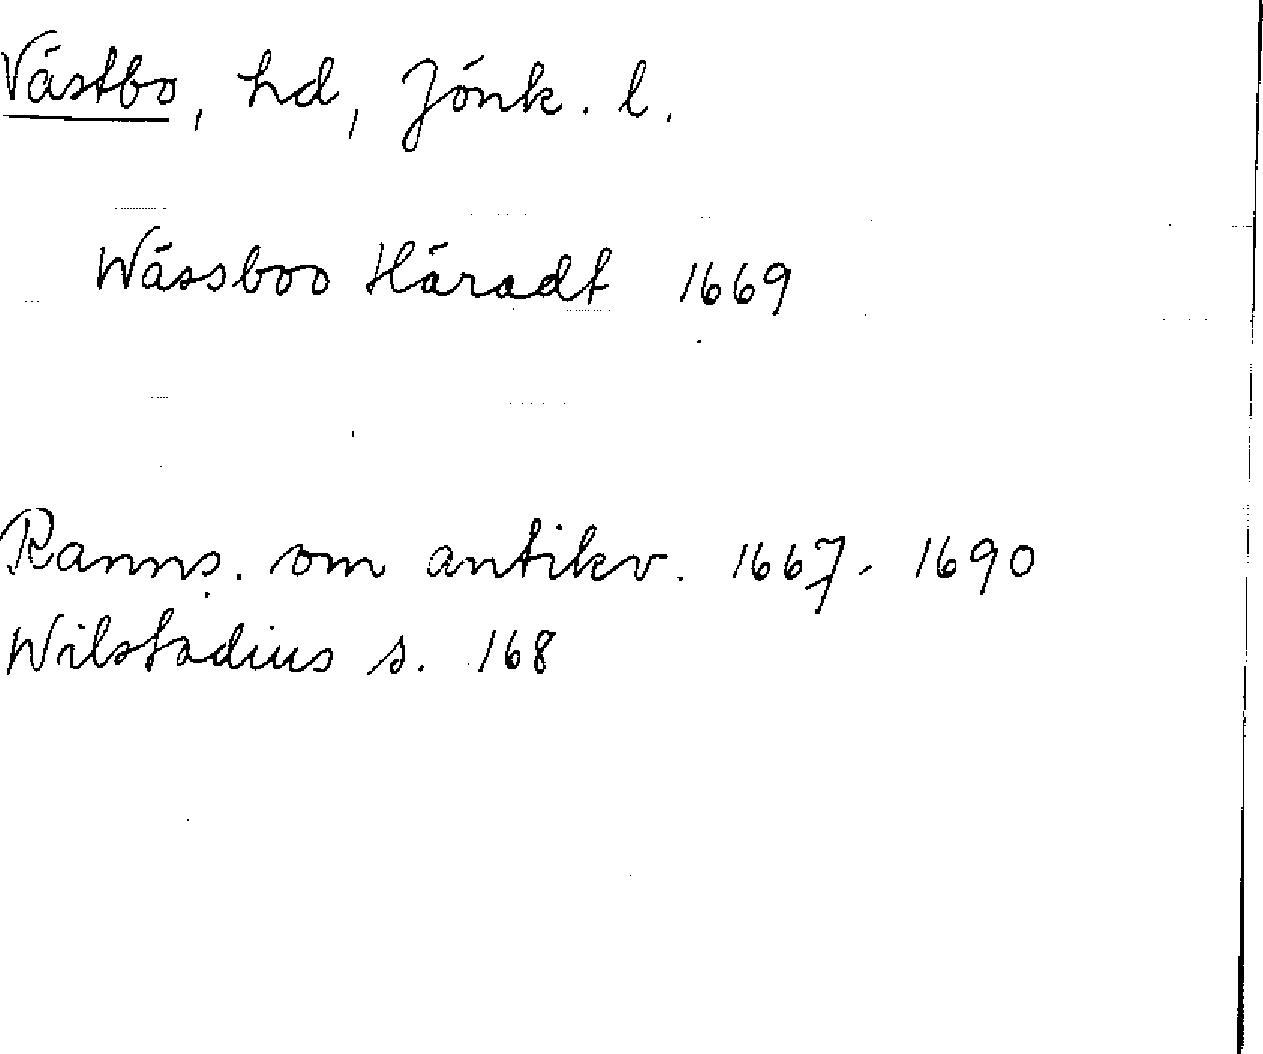 Västbo, hd, Jönk. l.
Wässboo Häradt 1669
Ranns. om antikv. 1667-1690
Wilstadius s. 168